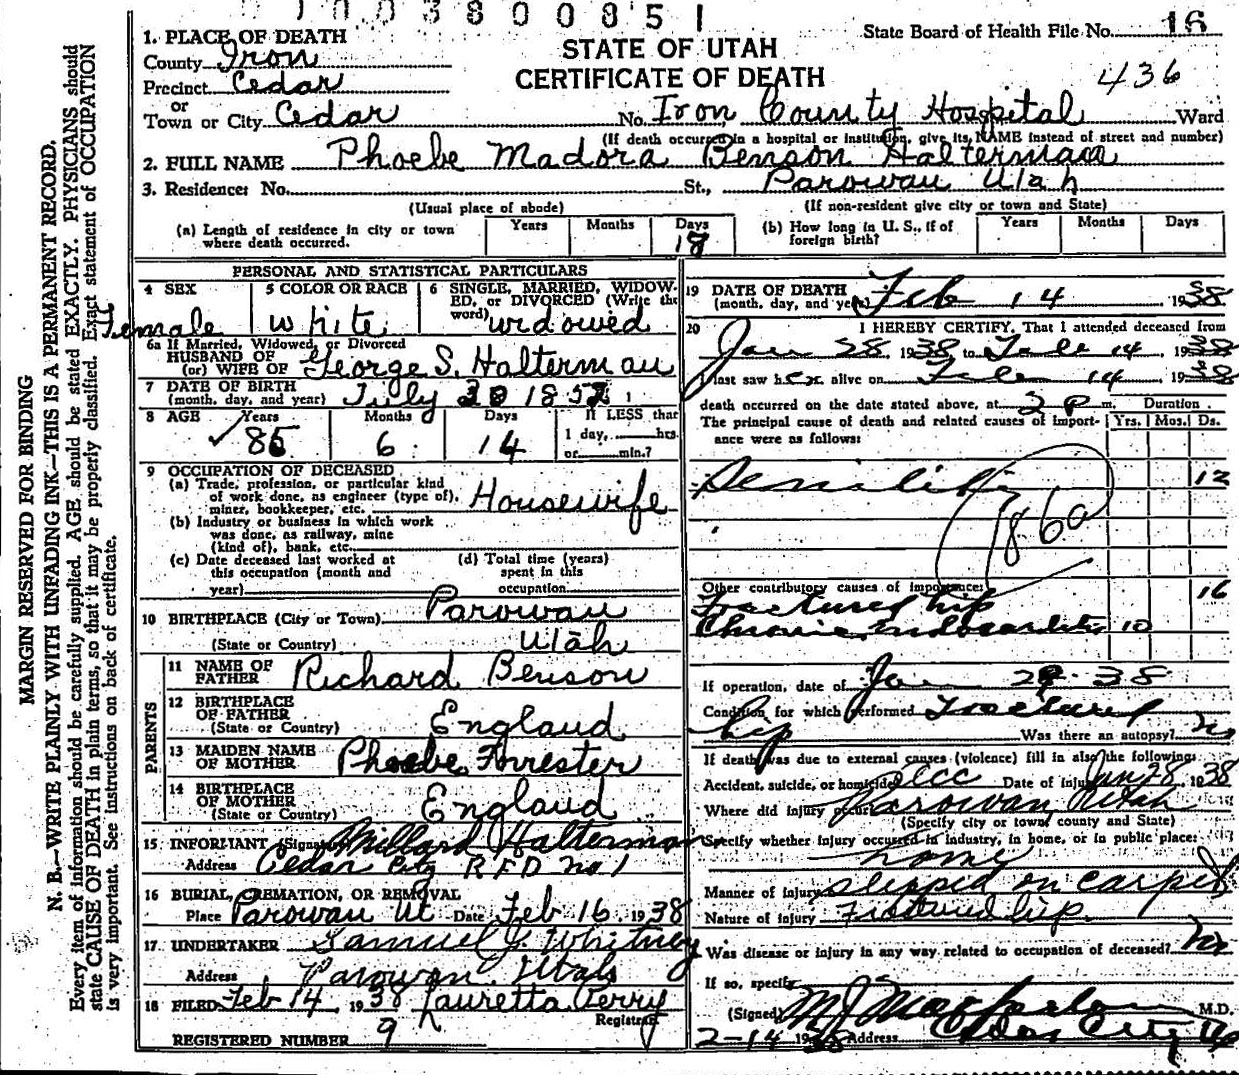 1003800851
State Board of Health File No. 16
STATE OF UTAH
CERTIFICATE OF DEATH
436
1. PLACE OF DEATH
County Iron
Precinct Cedar
or
Town or City Cedar No. Iron County Hospital Ward
(If death occurred in a hospital or institution, give its NAME instead of street and number)
2. FULL NAME Phoebe Madora Benson Halterman
3. Residence: No. St., Parowan Utah
(Usual place of abode) (If non-resident give city or town and State)
(a) Length of residence in city or town where death occurred. Years Months Days 18
(b) How long in U. S., if of foreign birth? Years Months Days
MARGIN RESERVED FOR BINDING
N. B.—WRITE PLAINLY WITH UNFADING INK—THIS IS A PERMANENT RECORD.
Every item of information should be carefully supplied. AGE should be stated EXACTLY. PHYSICIANS should
state CAUSE OF DEATH in plain terms, so that it may be properly classified. Exact statement of OCCUPATION
is very important. See instructions on back of certificate.
PERSONAL AND STATISTICAL PARTICULARS
4 SEX Female
5 COLOR OR RACE White
6 SINGLE, MARRIED, WIDOWED, or DIVORCED (Write the word) widowed
6a If Married, Widowed, or Divorced
HUSBAND OF
(or) WIFE OF George S. Halterman
7 DATE OF BIRTH
(month, day, and year) July 30 1852
8 AGE Years 85 Months 6 Days 14 If LESS than
1 day, hrs.
or min.?
9 OCCUPATION OF DECEASED
(a) Trade, profession, or particular kind
of work done, as engineer (type of),
miner, bookkeeper, etc. Housewife
(b) Industry or business in which work
was done, as railway, mine
(kind of), bank, etc.
(c) Date deceased last worked at
this occupation (month and
year)
(d) Total time (years)
spent in this
occupation
10 BIRTHPLACE (City or Town) Parowan
(State or Country) Utah
PARENTS
11 NAME OF FATHER Richard Benson
12 BIRTHPLACE OF FATHER
(State or Country) England
13 MAIDEN NAME OF MOTHER Phoebe Forrester
14 BIRTHPLACE OF MOTHER
(State or Country) England
15 INFORMANT (Signature) Millard Halterman
Address Cedar City R F D no 1
16 BURIAL, CREMATION, OR REMOVAL
Place Parowan Ut Date Feb 16, 1938
17. UNDERTAKER Samuel J. Whitney
Address Parowan Utah
18 FILED Feb 14, 1938 Lauretta Perry
Registrar
REGISTERED NUMBER 9
19 DATE OF DEATH
(month, day, and year) Feb 14, 1938
20 I HEREBY CERTIFY, That I attended deceased from
Jan 28, 1938 to Feb 14, 1938
I last saw her alive on Feb 14, 1938
death occurred on the date stated above, at 2 P m. Duration
The principal cause of death and related causes of importance were as follows: Yrs. Mos. Ds.
Senility 12
186a
Other contributory causes of importance: 16
Fractured hip
Chronic Endocarditis 10
If operation, date of Jan 29 - 38
Condition for which performed Fractured
hip Was there an autopsy? no
If death was due to external causes (violence) fill in also the following:
Accident, suicide, or homicide acc Date of injury Jan 28, 1938
Where did injury occur Parowan Utah
(Specify city or town, county and State)
Specify whether injury occurred in industry, in home, or in public place:
home
Manner of injury slipped on carpet
Nature of injury Fractured hip
Was disease or injury in any way related to occupation of deceased? no
If so, specify
(Signed) M J Macfarlane M.D.
2-14 1938 Address Cedar City Ut